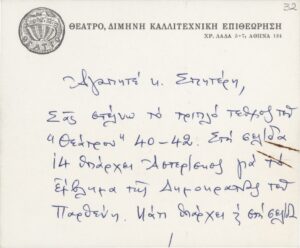 32
ΘΕΑΤΡΟ, ΔΙΜΗΝΗ ΚΑΛΛΙΤΕΧΝΙΚΗ ΕΠΙΘΕΩΡΗΣΗ
ΧΡ. ΛΑΔΑ 5-7, ΑΘΗΝΑ 124
Ἀγαπητέ κ. Σπητέρη,
Σᾶς στέλνω τό τριπλό τεῦχος τοῦ
"Θεάτρου" 40-42. Στή σελίδα
14 ὑπάρχει Ἀστερίσκος γιά τό
ἔμβλημα τῆς Δημοκρατίας τοῦ
Παρθένη. Κάτι ὑπάρχει στή σελίδα